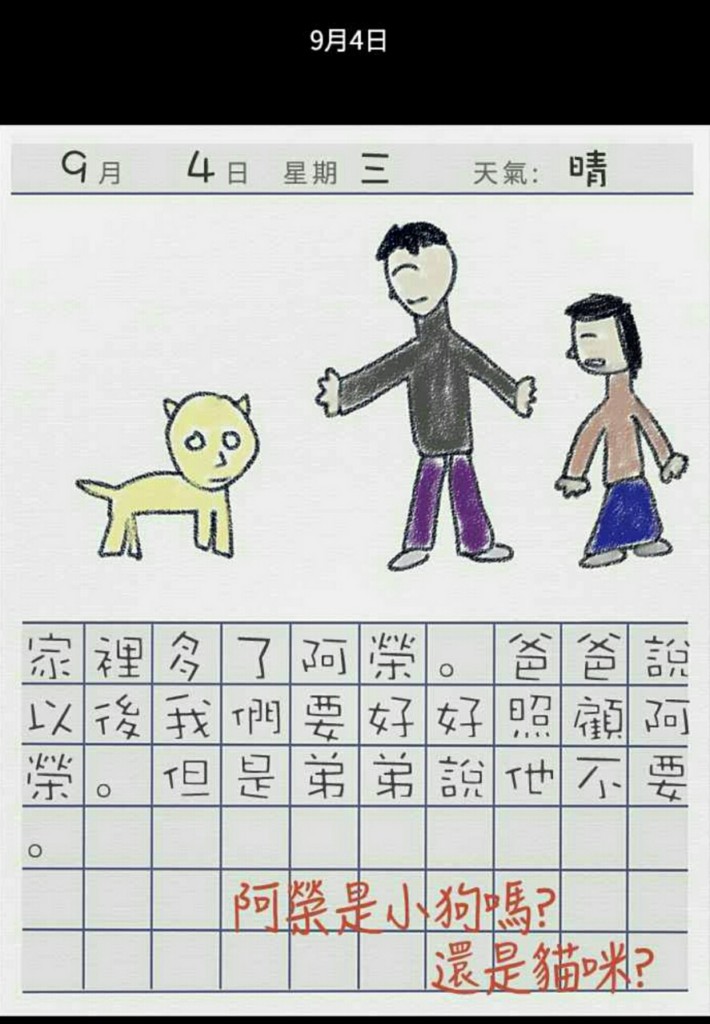 9月4日
9月 4日 星期三 天氣: 晴
家裡多了阿榮。爸爸說
以後我們要好好照顧阿
榮。但是弟弟說他不要
。
阿榮是小狗嗎?
還是貓咪?